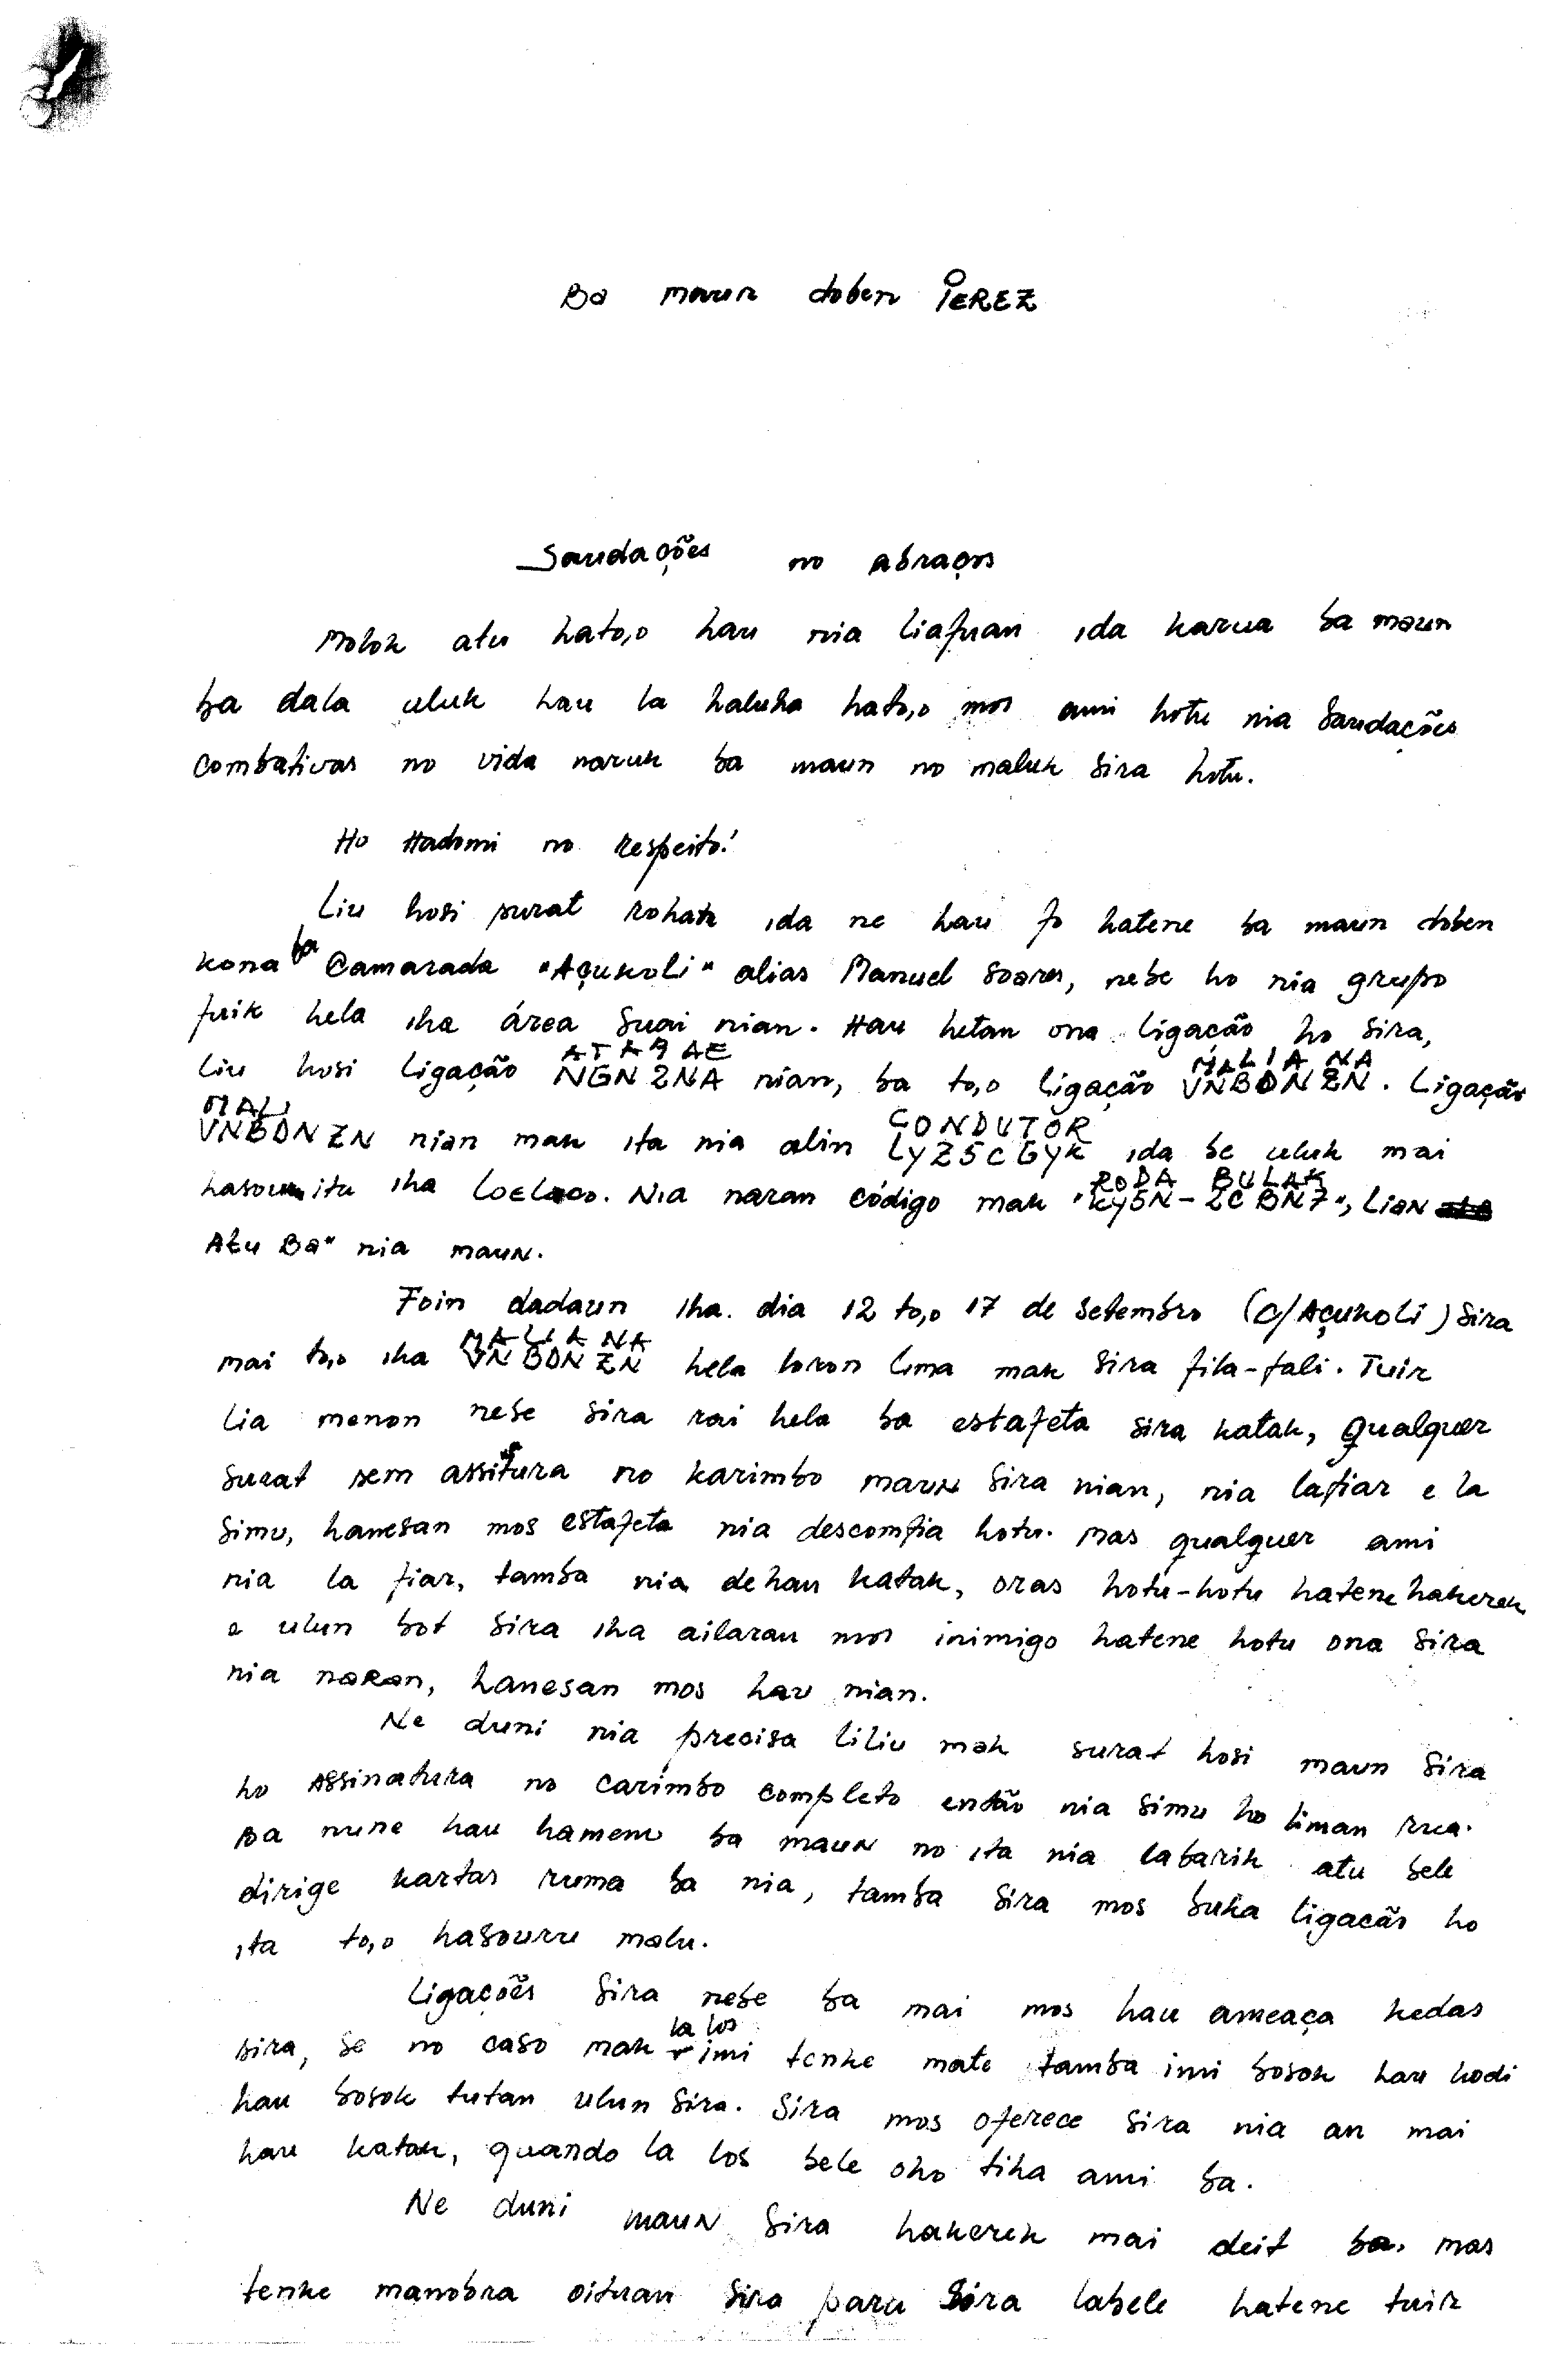 Ba maun doben PEREZ
Saudações no abraços
Molok atu hato,o hau nia liafuan ida karua ba maun
ba dala uluk hau la haluha hato,o mos ami hotu nia Saudações
combativas no vida naruk ba maun no maluk sira hotu.
Ho Hadomi no respeito!
Liu hosi surat rohan ida ne hau fo hatene ba maun doben
kona ba Camarada "Açukoli" alias Manuel Soares, nebe ho nia grupo
fuik hela iha área Suai nian. Hau hetan ona ligação ho sira,
ATABAE MALIANA
liu hosi ligação NGN2NA nian, ba to,o ligação VNBDNZN. Ligação
MALI CONDUTOR
VNBDNZN nian mak ita nia alin LYZ5CGYK ida be uluk mai
RODA BULAK
hasouru itu iha Loelaco. Nia naran código mak "KY5N-2CBN7", Lian
Atu Ba" nia maun.
Foin dadaun iha dia 12 to,o 17 de Setembro (C/Açukoli) sira
MALIANA
mai to,o iha VNBDNZN hela loron lima mak sira fila-fali. Tuir
lia menon nebe sira rai hela ba estafeta sira katak, qualquer
surat sem assitura no karimbo maun sira nian, nia lafiar e la
simu, hanesan mos estafeta nia descomfia hotu. Mas qualquer ami
nia la fiar, tamba nia dehan katak, oras hotu-hotu hatene hakerek
e ulun bot sira iha ailaran mos inimigo hatene hotu ona sira
nia naran, hanesan mos hau nian.
Ne duni nia precisa liliu mak surat hosi maun sira
ho Assinatura no carimbo completo então nia simu ho liman rua.
Ba nune hau hamenu ba maun no ita nia labarik atu bele
dirige kartas ruma ba nia, tamba sira mos buka ligacão ho
ita to,o hasouru malu.
Ligacões sira nebe ba mai mos hau ameaça kedas
la los
sira, se no caso mak imi tenke mate tamba imi bosok hau hodi
hau bosok tutan ulun sira. Sira mos oferece sira nia an mai
hau katak, quando la los bele oho tiha ami ba.
Ne duni maun sira hakerek mai deit ba. mas
tenke manobra oituan sira para sira labele hatene tuir